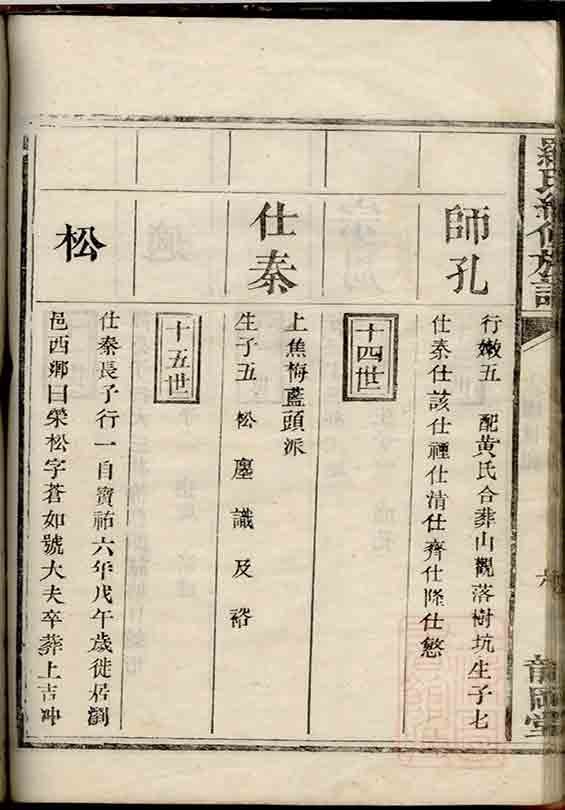 羅氏續修族譜
龍岡堂
師孔
行嫩五 配黃氏合葬山觀落樹坑生子七
仕泰仕該仕種仕清仕齊仕隆仕慾
十四世
仕泰
上焦梅藍頭派
生子五松塵識及裕
十五世
松
仕泰長子行一自寶祐六年戊午歲徙居瀏
邑西鄉曰榮松字蒼如號大夫卒葬上吉冲